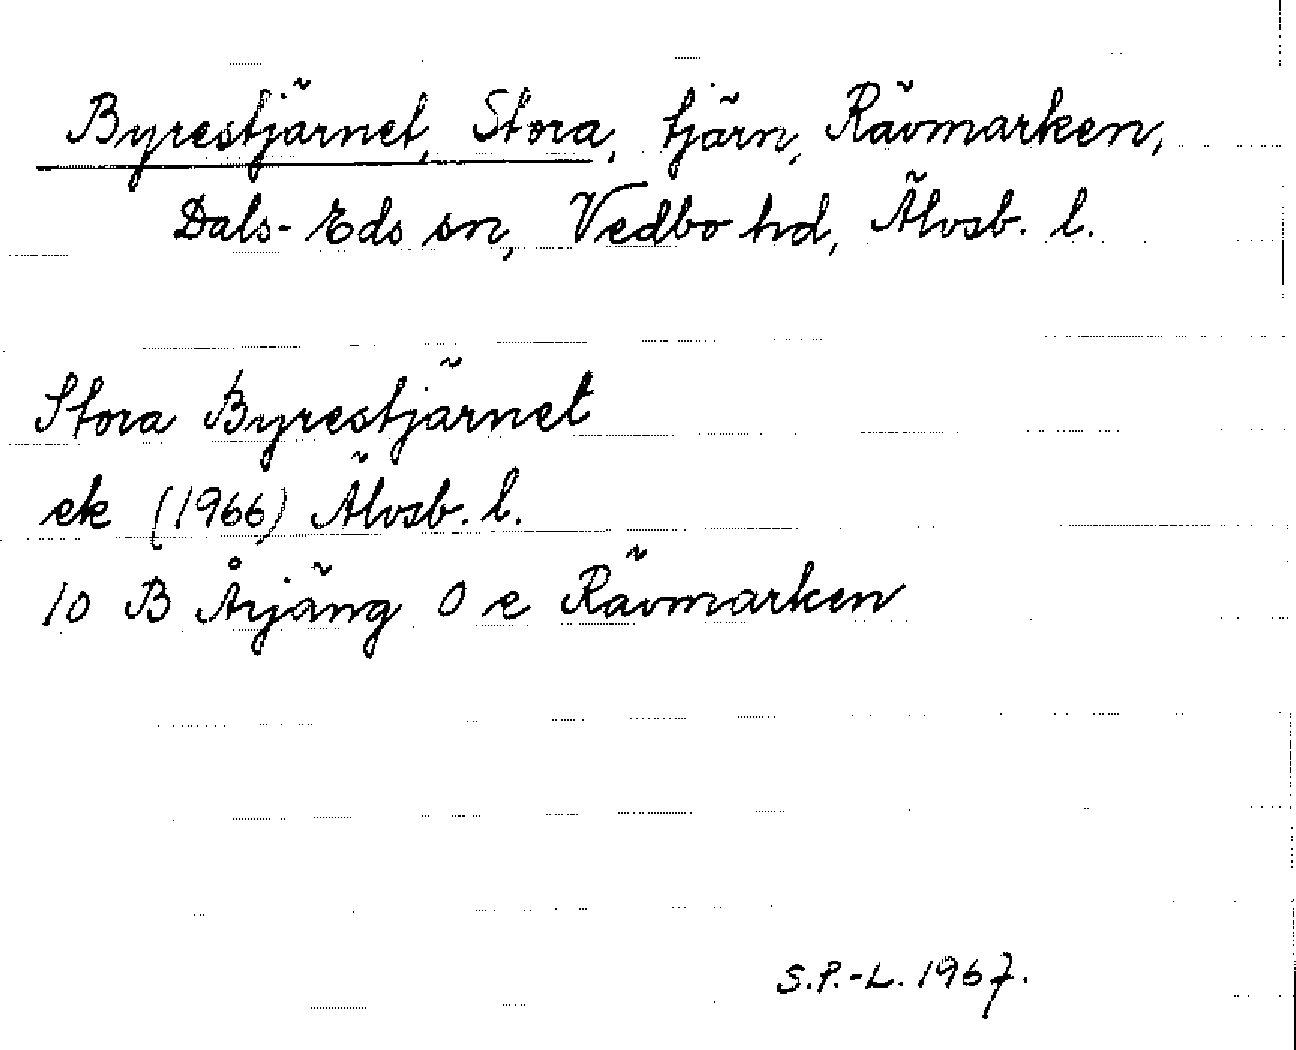 Byrestjärnet, Stora, tjärn, Rävmarken,
Dals-Eds sn, Vedbo hd, Älvsb. l.
Stora Byrestjärnet
ek (1966) Älvsb. l.
10 B Årjäng 0 e Rävmarken
S.P.-L. 1967.